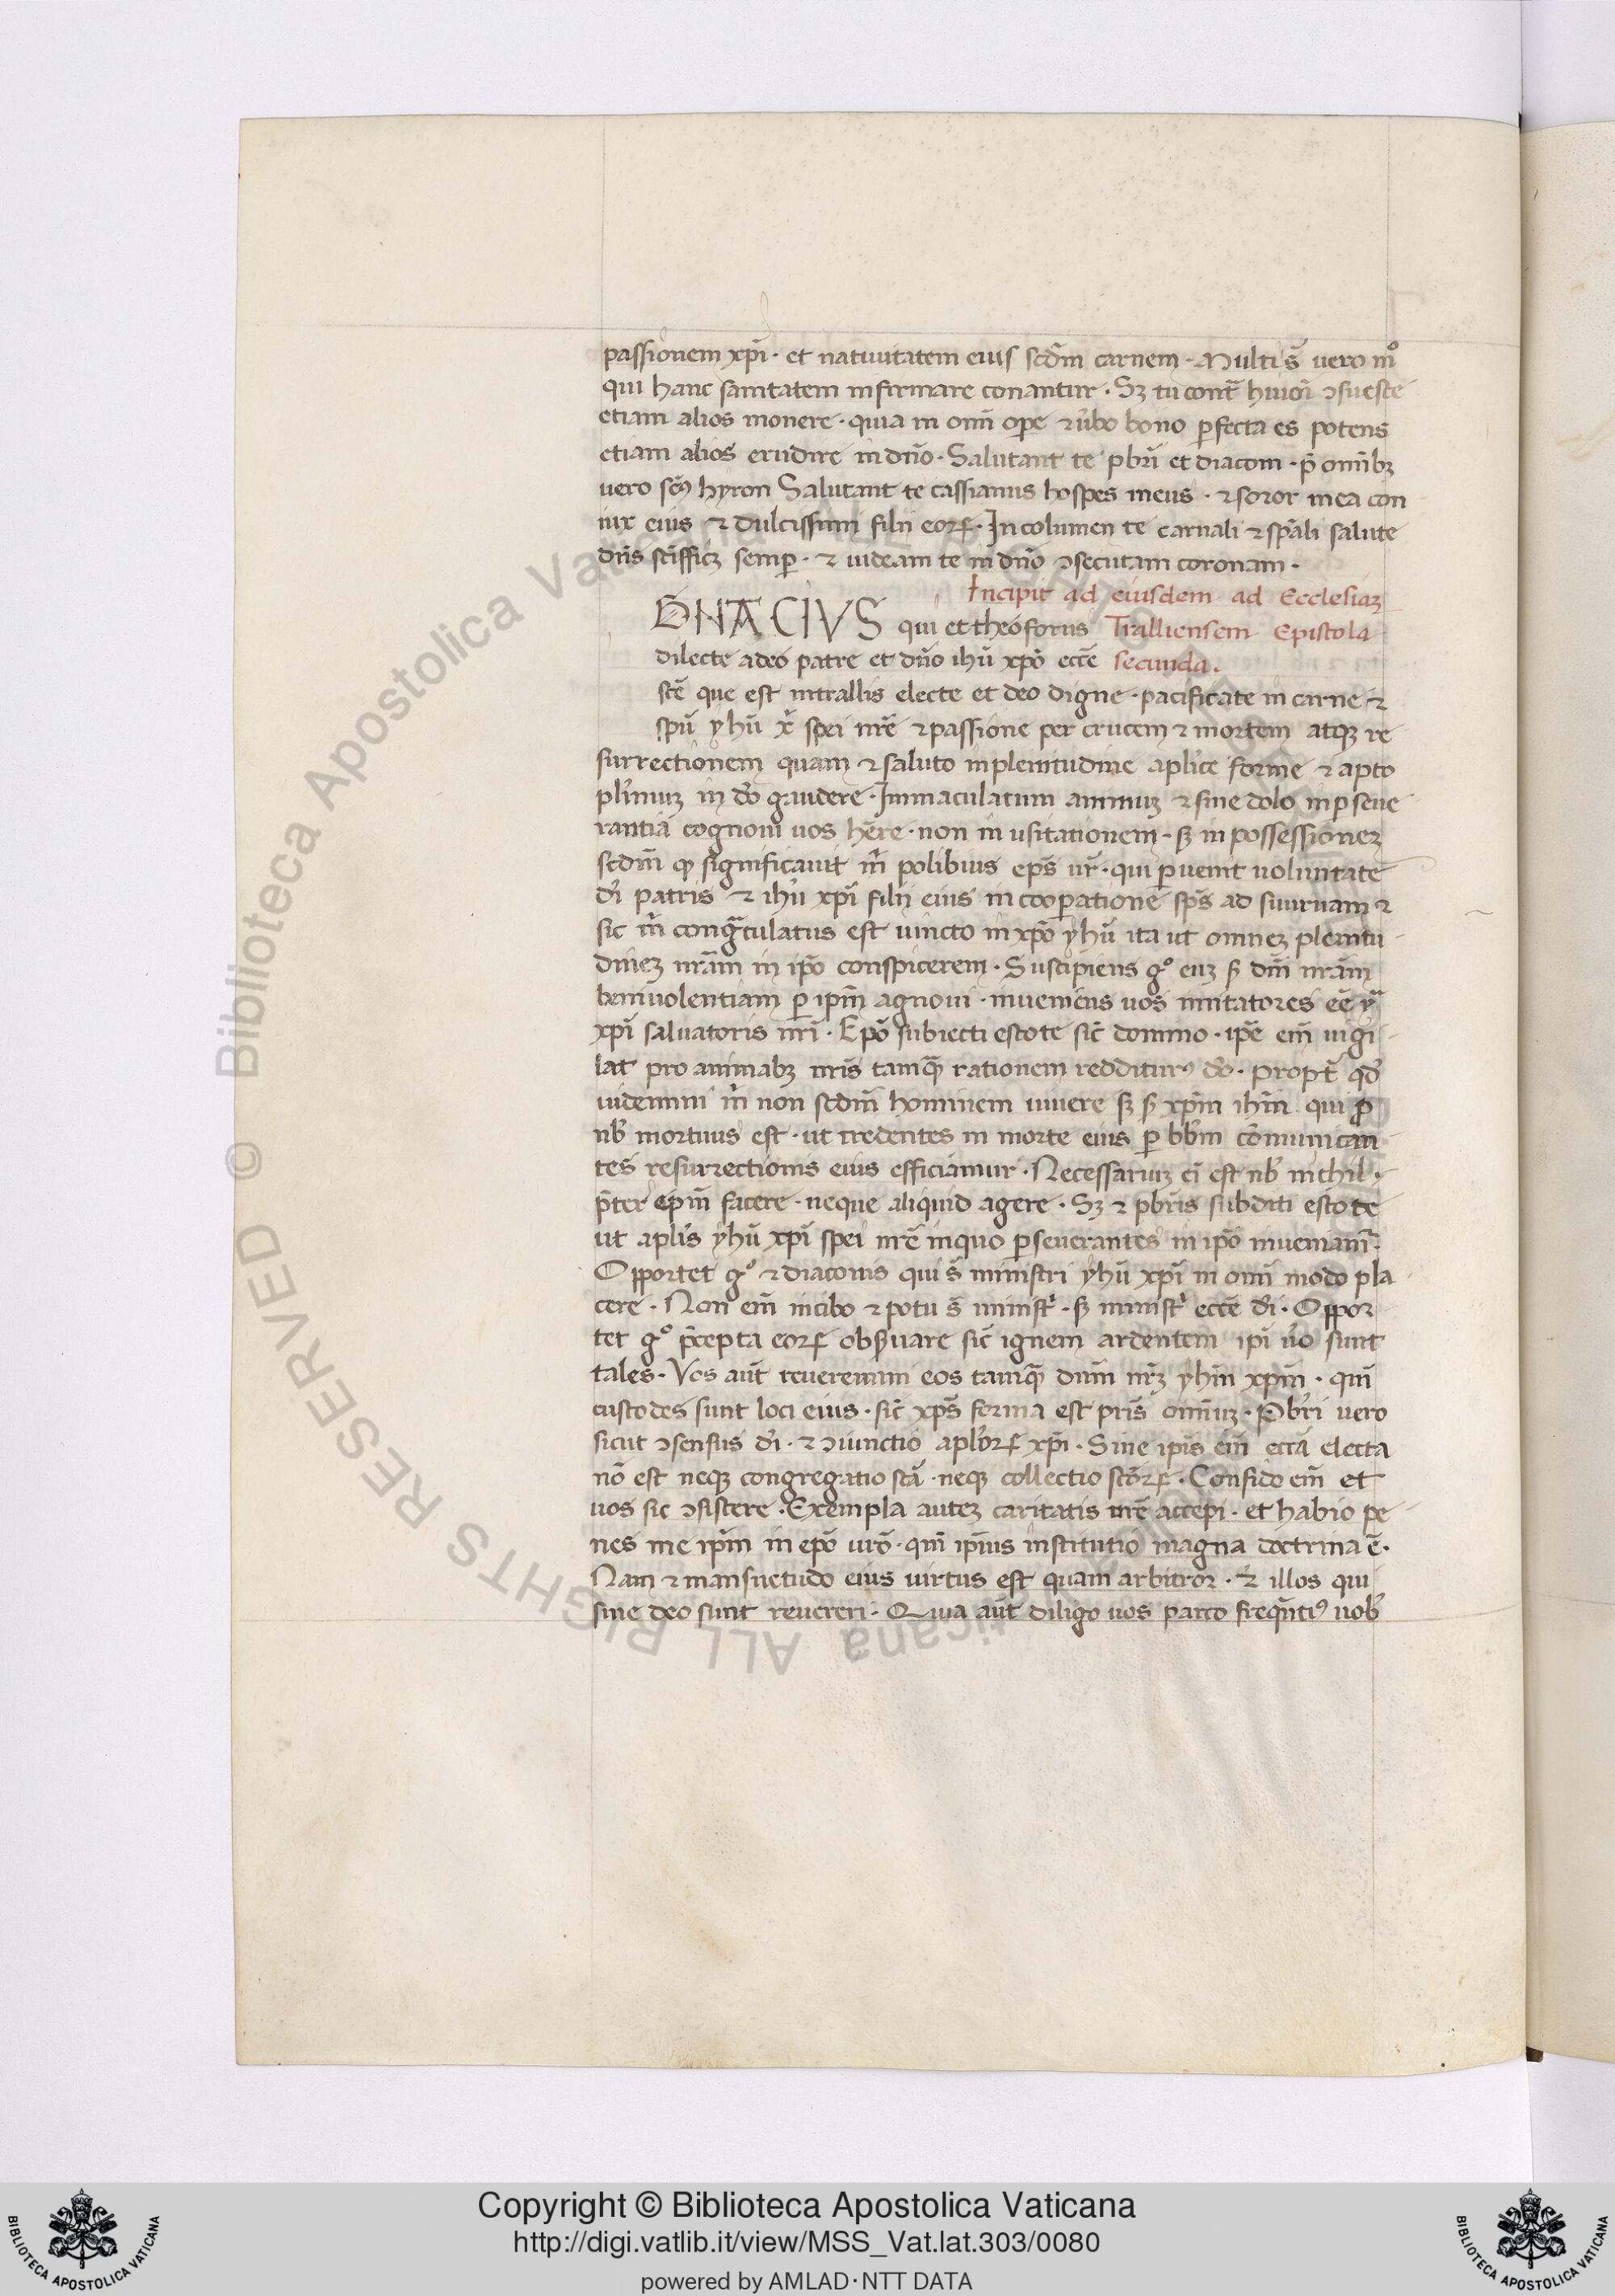 passionem xp̄i · et natiuitatem eius scd̄m carnem · Multi s̄ vero m̊
qui hanc sanitatem infirmare conantur · Sꝫ tu cont̄ huiōi ꝯsueste
etiam alios monere · quia in om̄i ope ⁊ ūbo bono ꝑfecta es potens
etiam alios erudire in dn̄o · Salutant te p̄bri et diaconi · p̄ om̄ibꝫ
vero sc̄s hyron Salutant te cassianus hospes meus · ⁊ soror mea con
iux eius ⁊ dulcissimi filii eoꝝ · Incolumen te carnali ⁊ sp̄ali salute
dn̄s sc̄ifficꝫ semꝑ · ⁊ uideam te in dn̄o ꝯsecutam coronam ·
Incipit ad eiusdem ad Ecclesiaꝫ
GNACIVS qui et theoforus Tralliensem Epistola
dilecte adeo patre et dn̄o ihū xp̄o ecc̄e secunda .
sc̄e que est intrallis electe et deo digne · pacificate in carne ⁊
spū yhū x̄ spei nr̄e ⁊ passione per crucem ⁊ mortem atqꝫ re
surrectionem quam ⁊ saluto inplenitudine apl̄ice forme ⁊ apto
pl̄imuꝫ in d̄o gaudere · Immaculatum animuꝫ ⁊ sine dolo in ꝑseue
rantiā cognoui uos hēre · non in usitationem · sꝫ in possessioneꝫ
scdm̄ ꝙ significauit m̄ polibius ep̄s ur̄ · qui ꝑuenit uoluntate
dī patris ⁊ ihū xp̄i filii eius in cooꝑatione sp̄s ad smirnam ⁊
sic m̄ congͣtulatus est uincto in xp̄o yhū ita ut omneꝫ plenitu
dineꝫ nr̄am in ip̄o conspicerem · Suscipiens gͦ euꝫ s dm̄ nr̄am
beniuolentiam ꝑ ip̄m agnoui · inueniens uos imitatores eē y
xp̄i saluatoris nr̄i · Ep̄o subiecti estote sic̄ domino · ip̄e em̄ uigi
lat pro animabꝫ nr̄is tamqͣ rationem redditurꝰ d̄o · propt̄ qd̄
uidemini m̄ non scdm̄ hominem uiuere sꝫ s xp̄m ihm̄ qui ꝓ
nb̄ mortuus est · ut credentes in morte eius ꝑ bb̄m cōmunican
tes resurrectionis eius efficiamur · Necessariuꝫ eī est nb̄ nichil ·
p̄ter ep̄m facere · neque aliquid agere · Sꝫ ⁊ p̄bris subditi estote
ut apl̄is yhū xp̄i spei nr̄e inquo ꝑseuerantes in ip̄o inueniam̄ ·
Opportet gͦ ⁊ diaconis qui s̄ ministri yhū xp̄i in om̄i modo pla
cere · Non em̄ incibo ⁊ potu s̄ minist̄ · sꝫ minist̄ ecc̄e dī · Oppor
tet gͦ p̄cepta eoꝝ obẜuare sic̄ ignem ardentem ip̄i ūo sunt
tales · Vos aūt reueremini eos tamqͣ dnm̄ nr̄ꝫ yhm̄ xp̄m · qm̄
custodes sunt loci eius · sic̄ xp̄s forma est pr̄is om̄iuꝫ · Pbr̄i uero
sicut ꝯsensus dī · ⁊ ꝯiunctio apl̄oꝝ xp̄i · Sine ip̄is em̄ ecc̄a electa
nō est neqꝫ congregatio sc̄a · neqꝫ collectio sc̄oꝝ · Confido em̄ et
uos sic ꝯsistere · Exempla auteꝫ caritatis nr̄e accepi · et habio pe
nes me ip̄m in ep̄o ur̄o · qm̄ ip̄ius institutio magna doctrina ē ·
Nam ⁊ mansuetudo eius uirtus est quam arbitror · ⁊ illos qui
sine deo sunt reuereri · Quia aūt diligo uos parco freqn̄tiꝰ uob̄
Copyright © Biblioteca Apostolica Vaticana
http://digi.vatlib.it/view/MSS_Vat.lat.303/0080
powered by AMLAD·NTT DATA